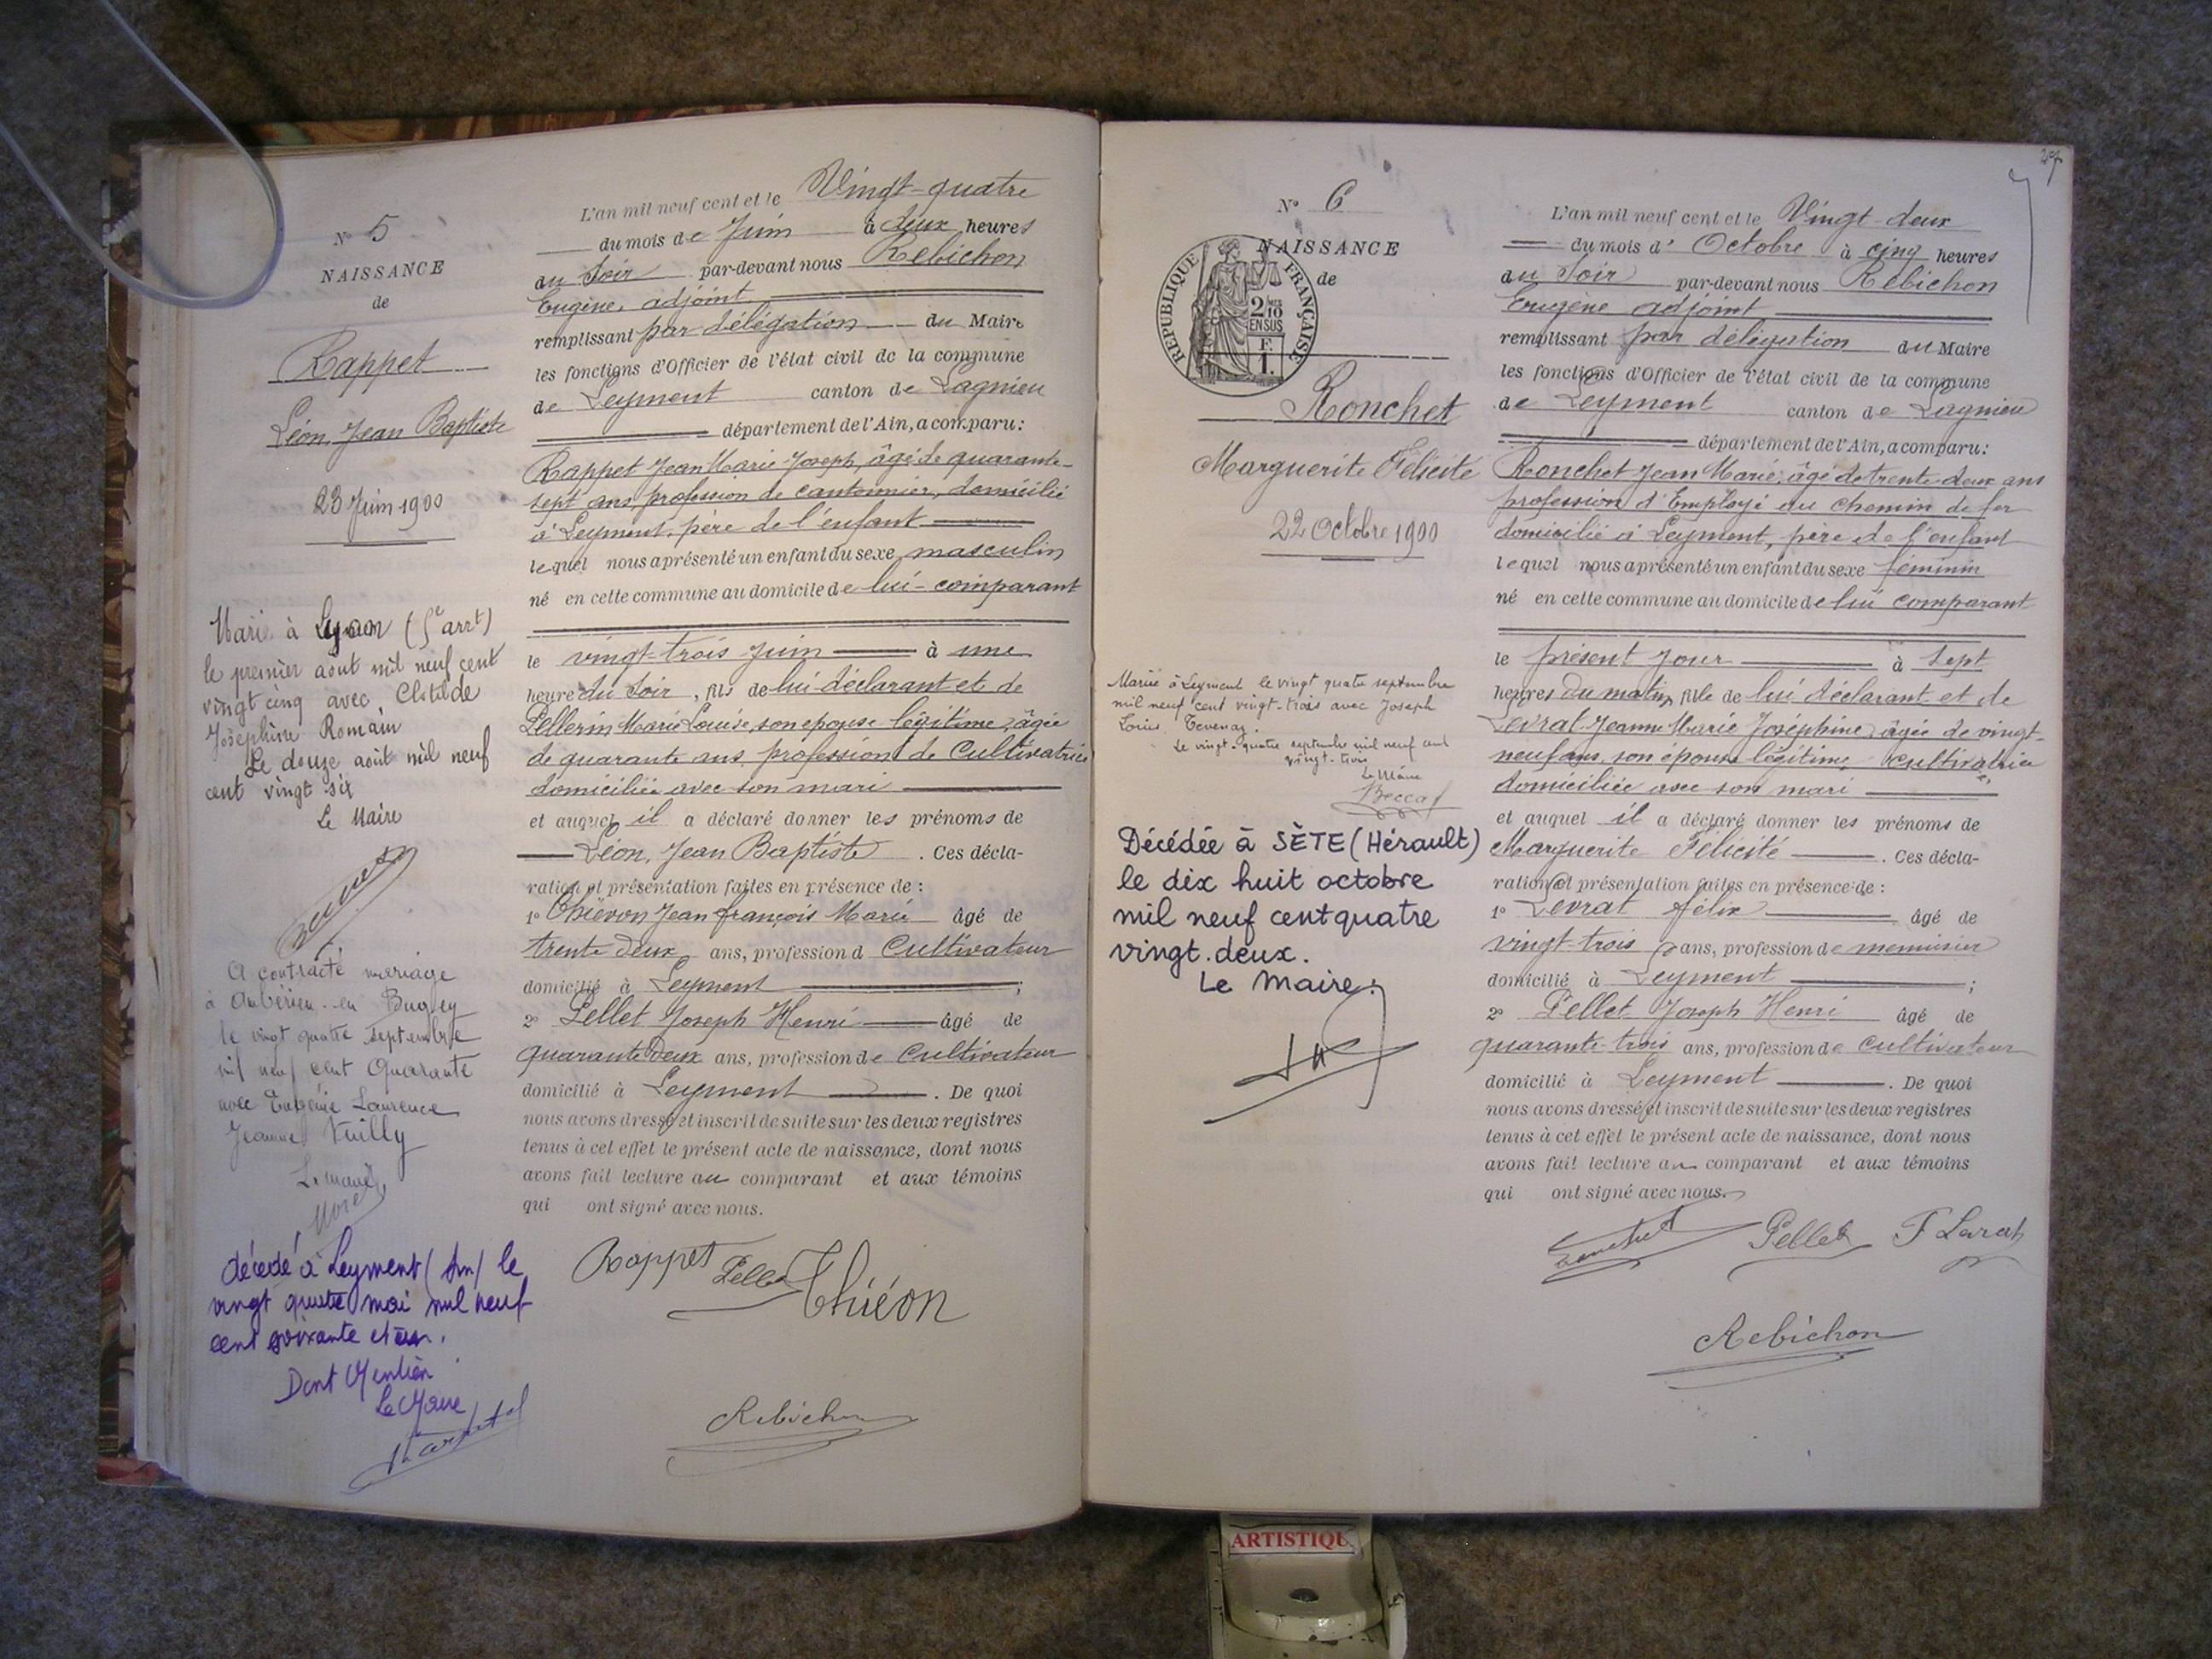 N° 5
NAISSANCE
de
Rappet
Léon, Jean Baptiste
23 Juin 1900
Marié à Lyon (5e arrt)
le premier août mil neuf cent
vingt cinq avec Clotilde
Joséphine Romain
Le douze août mil neuf
cent vingt six
Le Maire
A contracté mariage
à Ambérieu-en Bugey
le vingt quatre septembre
mil neuf cent Quarante
avec Eugénie Laurence
Jeanne Vuilly
Le maire
décédé à Leyment (Ain) le
vingt quatre mai mil neuf
cent soixante et un.
Dont Mention
Le Maire
L'an mil neuf cent et le Vingt-quatre
du mois de Juin à deux heures
du Soir par-devant nous Rebichon
Eugène, adjoint
remplissant par délégation du Maire
les fonctions d'Officier de l'état civil de la commune
de Leyment canton de Lagnieu
département de l'Ain, a comparu:
Rappet Jean Marie Joseph, âgé de quarante-
sept ans, profession de cantonnier, domicilié
à Leyment, père de l'enfant
lequel nous a présenté un enfant du sexe masculin
né en cette commune au domicile de lui-comparant
le vingt-trois Juin à une
heure du Soir, fils de lui déclarant et de
Pellerin Marie Louise, son épouse légitime, âgée
de quarante ans, profession de Cultivatrice
domiciliée avec son mari
et auquel il a déclaré donner les prénoms de
Léon, Jean Baptiste. Ces décla-
ration et présentation faites en présence de :
1° Thiévon Jean François Marie âgé de
trente deux ans, profession d Cultivateur
domicilié à Leyment ;
2° Pellet Joseph Henri âgé de
quarante deux ans, profession de Cultivateur
domicilié à Leyment. De quoi
nous avons dressé et inscrit de suite sur les deux registres
tenus à cet effet le présent acte de naissance, dont nous
avons fait lecture au comparant et aux témoins
qui ont signé avec nous.
Rappet Pellet Thiéon
Rebichon
27
N° 6
NAISSANCE
de
REPUBLIQUE FRANÇAISE
2/10
EN SUS
F.
1.
Ronchet
Marguerite Félicité
22 Octobre 1900
Mariée à Leyment le vingt quatre septembre
mil neuf cent vingt-trois avec Joseph
Louis Tevenaz.
Le vingt-quatre septembre mil neuf cent
vingt-trois
Le Maire
Décédée à SÈTE (Hérault)
le dix huit octobre
mil neuf cent quatre
vingt.deux.
Le Maire.
L'an mil neuf cent et le Vingt-deux
du mois d' Octobre à cinq heures
du Soir par-devant nous Rebichon
Eugène adjoint
remplissant par délégation du Maire
les fonctions d'Officier de l'état civil de la commune
de Leyment canton de Lagnieu
département de l'Ain, a comparu:
Ronchet Jean Marie, âgé de trente-deux ans
profession d'Employé au chemin de fer
domicilié à Leyment, père de l'enfant
lequel nous a présenté un enfant du sexe féminin
né en cette commune au domicile de lui comparant
le présent jour à sept
heures du matin, fille de lui déclarant et de
Levrat Jeanne Marie Joséphine, âgée de vingt-
neuf ans, son épouse légitime, cultivatrice
domiciliée avec son mari
et auquel il a déclaré donner les prénoms de
Marguerite Félicité. Ces décla-
ration et présentation faites en présence de :
1° Levrat Félix âgé de
vingt-trois ans, profession de menuisier
domicilié à Leyment ;
2° Pellet Joseph Henri âgé de
quarante-trois ans, profession de cultivateur
domicilié à Leyment. De quoi
nous avons dressé et inscrit de suite sur les deux registres
tenus à cet effet le présent acte de naissance, dont nous
avons fait lecture au comparant et aux témoins
qui ont signé avec nous.
Ronchet Pellet F Lavrat
Rebichon
ARTISTIQU